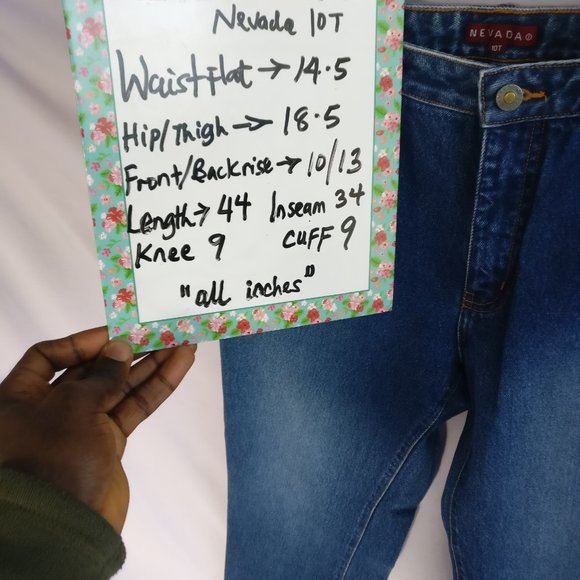 Nevada 10T
Waist flat → 14.5
Hip/Thigh → 18.5
Front/Backrise → 10/13
Length → 44 Inseam 34
Knee 9 CUFF 9
"all inches"
NEVADA®
10T